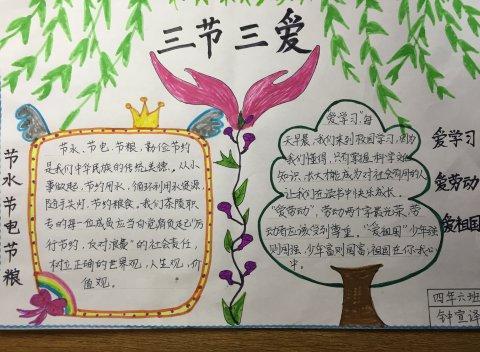 三节三爱
节水节电节粮
节水、节电、节粮、勤俭节约
是我们中华民族的传统美德。从小
事做起,节约用水,循环利用水资源,
随手关灯,节约粮食。我们茶陵职
专的每一位成员应当自觉肩负起“厉
行节约,反对浪费”的社会责任,
树立正确的世界观,人生观,价
值观。
爱学习”每
天早晨,我们来到校园学习,因为
我们懂得,只有掌握科学文化
知识,长大才能成为对社会有用的人
让我们在读书中快乐成长。
“爱劳动”,劳动两个字最光荣,劳
动者应该受到尊重。“爱祖国”少年强
则国强,少年富则国富;祖国在你我心
中。
爱学习
爱劳动
爱祖国
四年六班
钟宣译